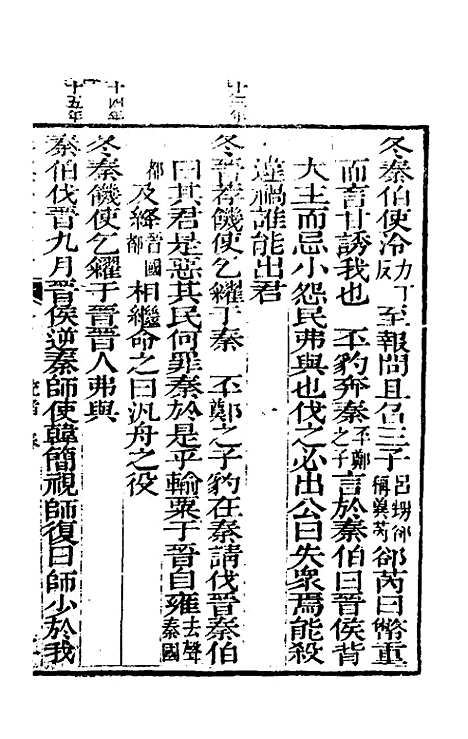 冬秦伯使冷力丁反至報問且召三子呂甥郤稱冀芮郤芮曰幣重
而言甘誘我也　丕豹奔秦丕鄭之子言於秦伯曰晉侯背
大主而忌小怨民弗與也伐之必出公曰失眾焉能殺
違禍誰能出君
十三年
冬晉荐饑使乞糴于秦　丕鄭之子豹在秦請伐晉秦伯
曰其君是惡其民何罪秦於是乎輸粟于晉自雍去聲秦國
都及絳晉國都相繼命之曰汎舟之役
十四年
冬秦饑使乞糴于晉晉人弗與
十五年
秦伯伐晉九月晉侯逆秦師使韓簡視師復曰師少於我